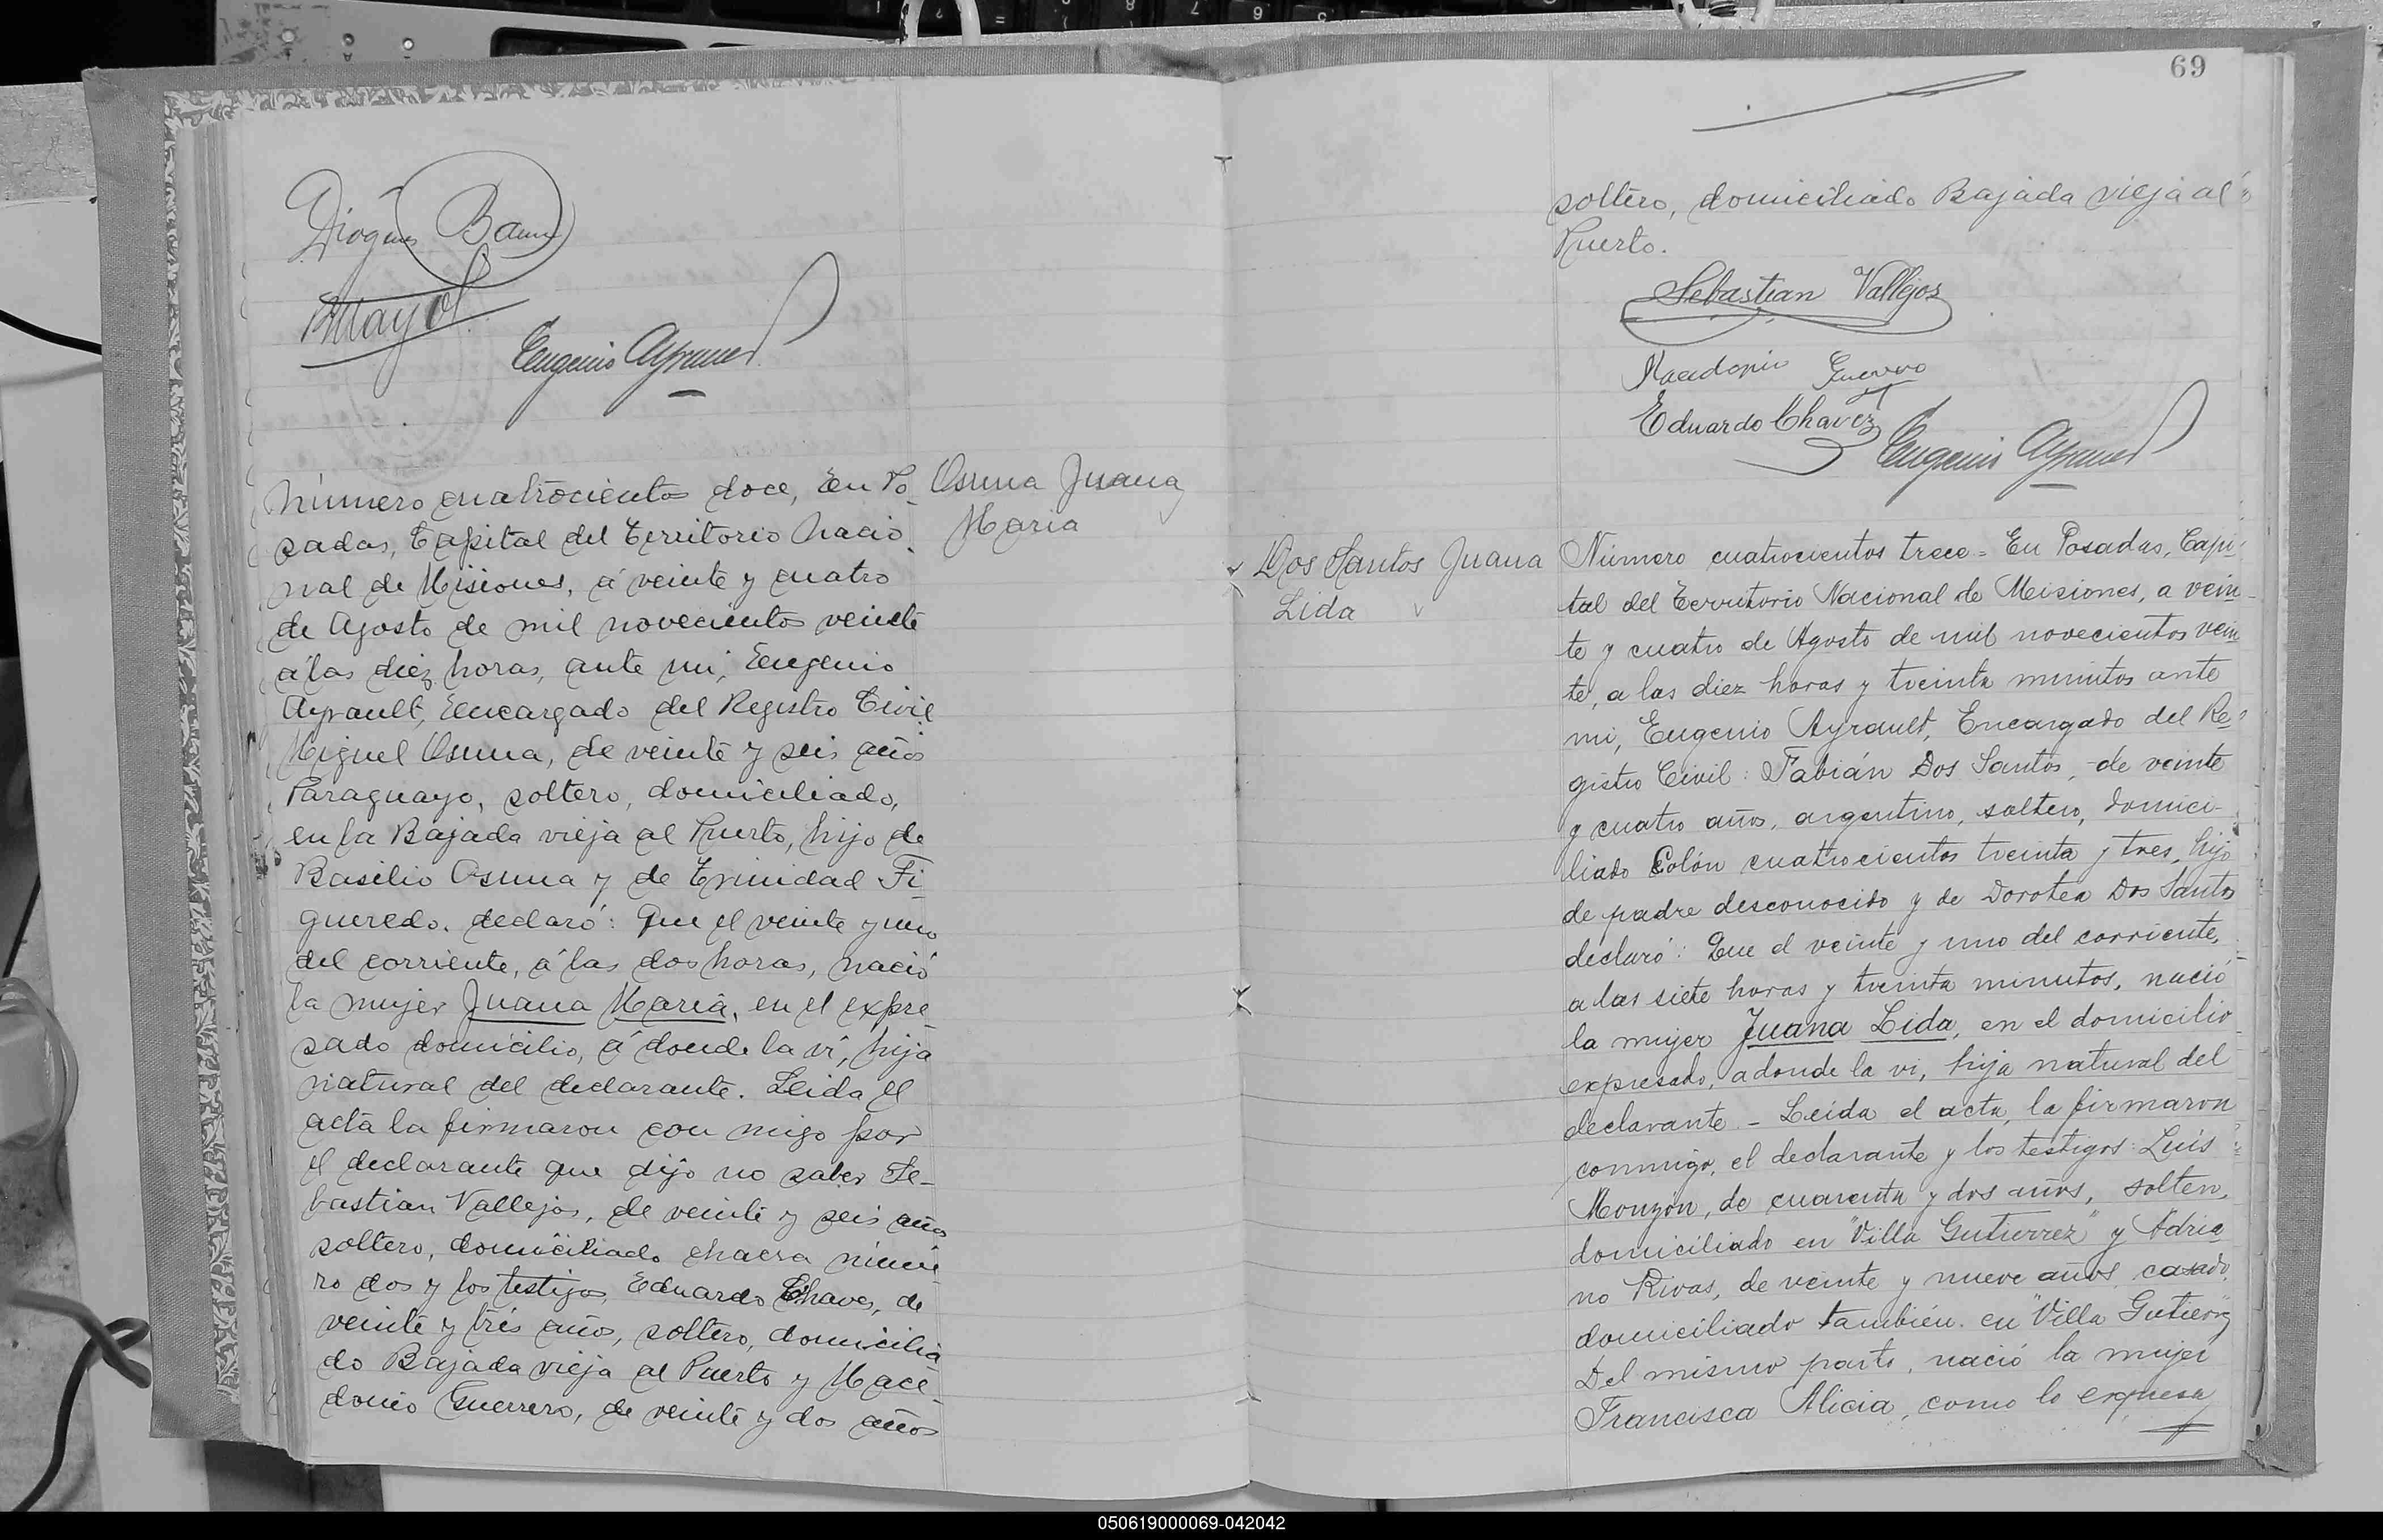 Diógenes
BMayol
Eugenio Ayrault
Número cuatrocientos doce, En Po
sadas, Capital del Territorio Nacio
nal de Misiones, á veinte y cuatro
de Agosto de mil novecientos veinte
á las diez horas, ante mi, Eugenio
Ayrault, Encargado del Registro Civil
Miguel Osuna, de veinte y seis años
Paraguayo, soltero, domiciliado,
en la Bajada vieja al Puerto, hijo de
Basilio Osuna y de Trinidad Fi
gueredo, declaró: Que el veinte y uno
del corriente, á las dos horas, nació
la mujer Juana María, en el expre
sado domicilio, á donde la ví, hija
natural del declarante. Leida el
acta la firmaron con migo por
el declarante que dijo no saber Se-
bastian Vallejos, de veinte y seis años
soltero, domiciliado chacra núme
ro dos y los testigos, Eduardo Chaves, de
veinte y trés años, soltero, domicilia
do Bajada vieja al Puerto y Mace
donio Guerrero, de veinte y dos años
Osuna Juana
Maria
69
soltero, domiciliado Bajada vieja al
Puerto.
Sebastian Vallejos
Macedonio Guerrero
Eduardo Chavez
Eugenio Ayrault
Dos Santos Juana
Lida
Número cuatrocientos trece = En Posadas, Capi
tal del Territorio Nacional de Misiones, a vein
te y cuatro de Agosto de mil novecientos vein
te, a las diez horas y treinta minutos ante
mi, Eugenio Ayrault, Encargado del Re
gistro Civil: Fabián Dos Santos, de veinte
y cuatro años, argentino, soltero, domici-
liado Colón cuatrocientos treinta y tres, hijo
de padre desconocido y de Dorotea Dos Santos
declaró: Que el veinte y uno del corriente,
a las siete horas y treinta minutos, nació
la mujer Juana Lida, en el domicilio
expresado, adonde la vi, hija natural del
declarante. - Leída el acta, la firmaron
conmigo, el declarante y los testigos: Luis
Monzón, de cuarenta y dos años, soltero,
domiciliado en "Villa Gutierrez" y Adria
no Rivas, de veinte y nueve años, casado,
domiciliado también en "Villa Gutierrez"
Del mismo parto, nació la mujer
Francisca Alicia, como lo expresa
050619000069-042042